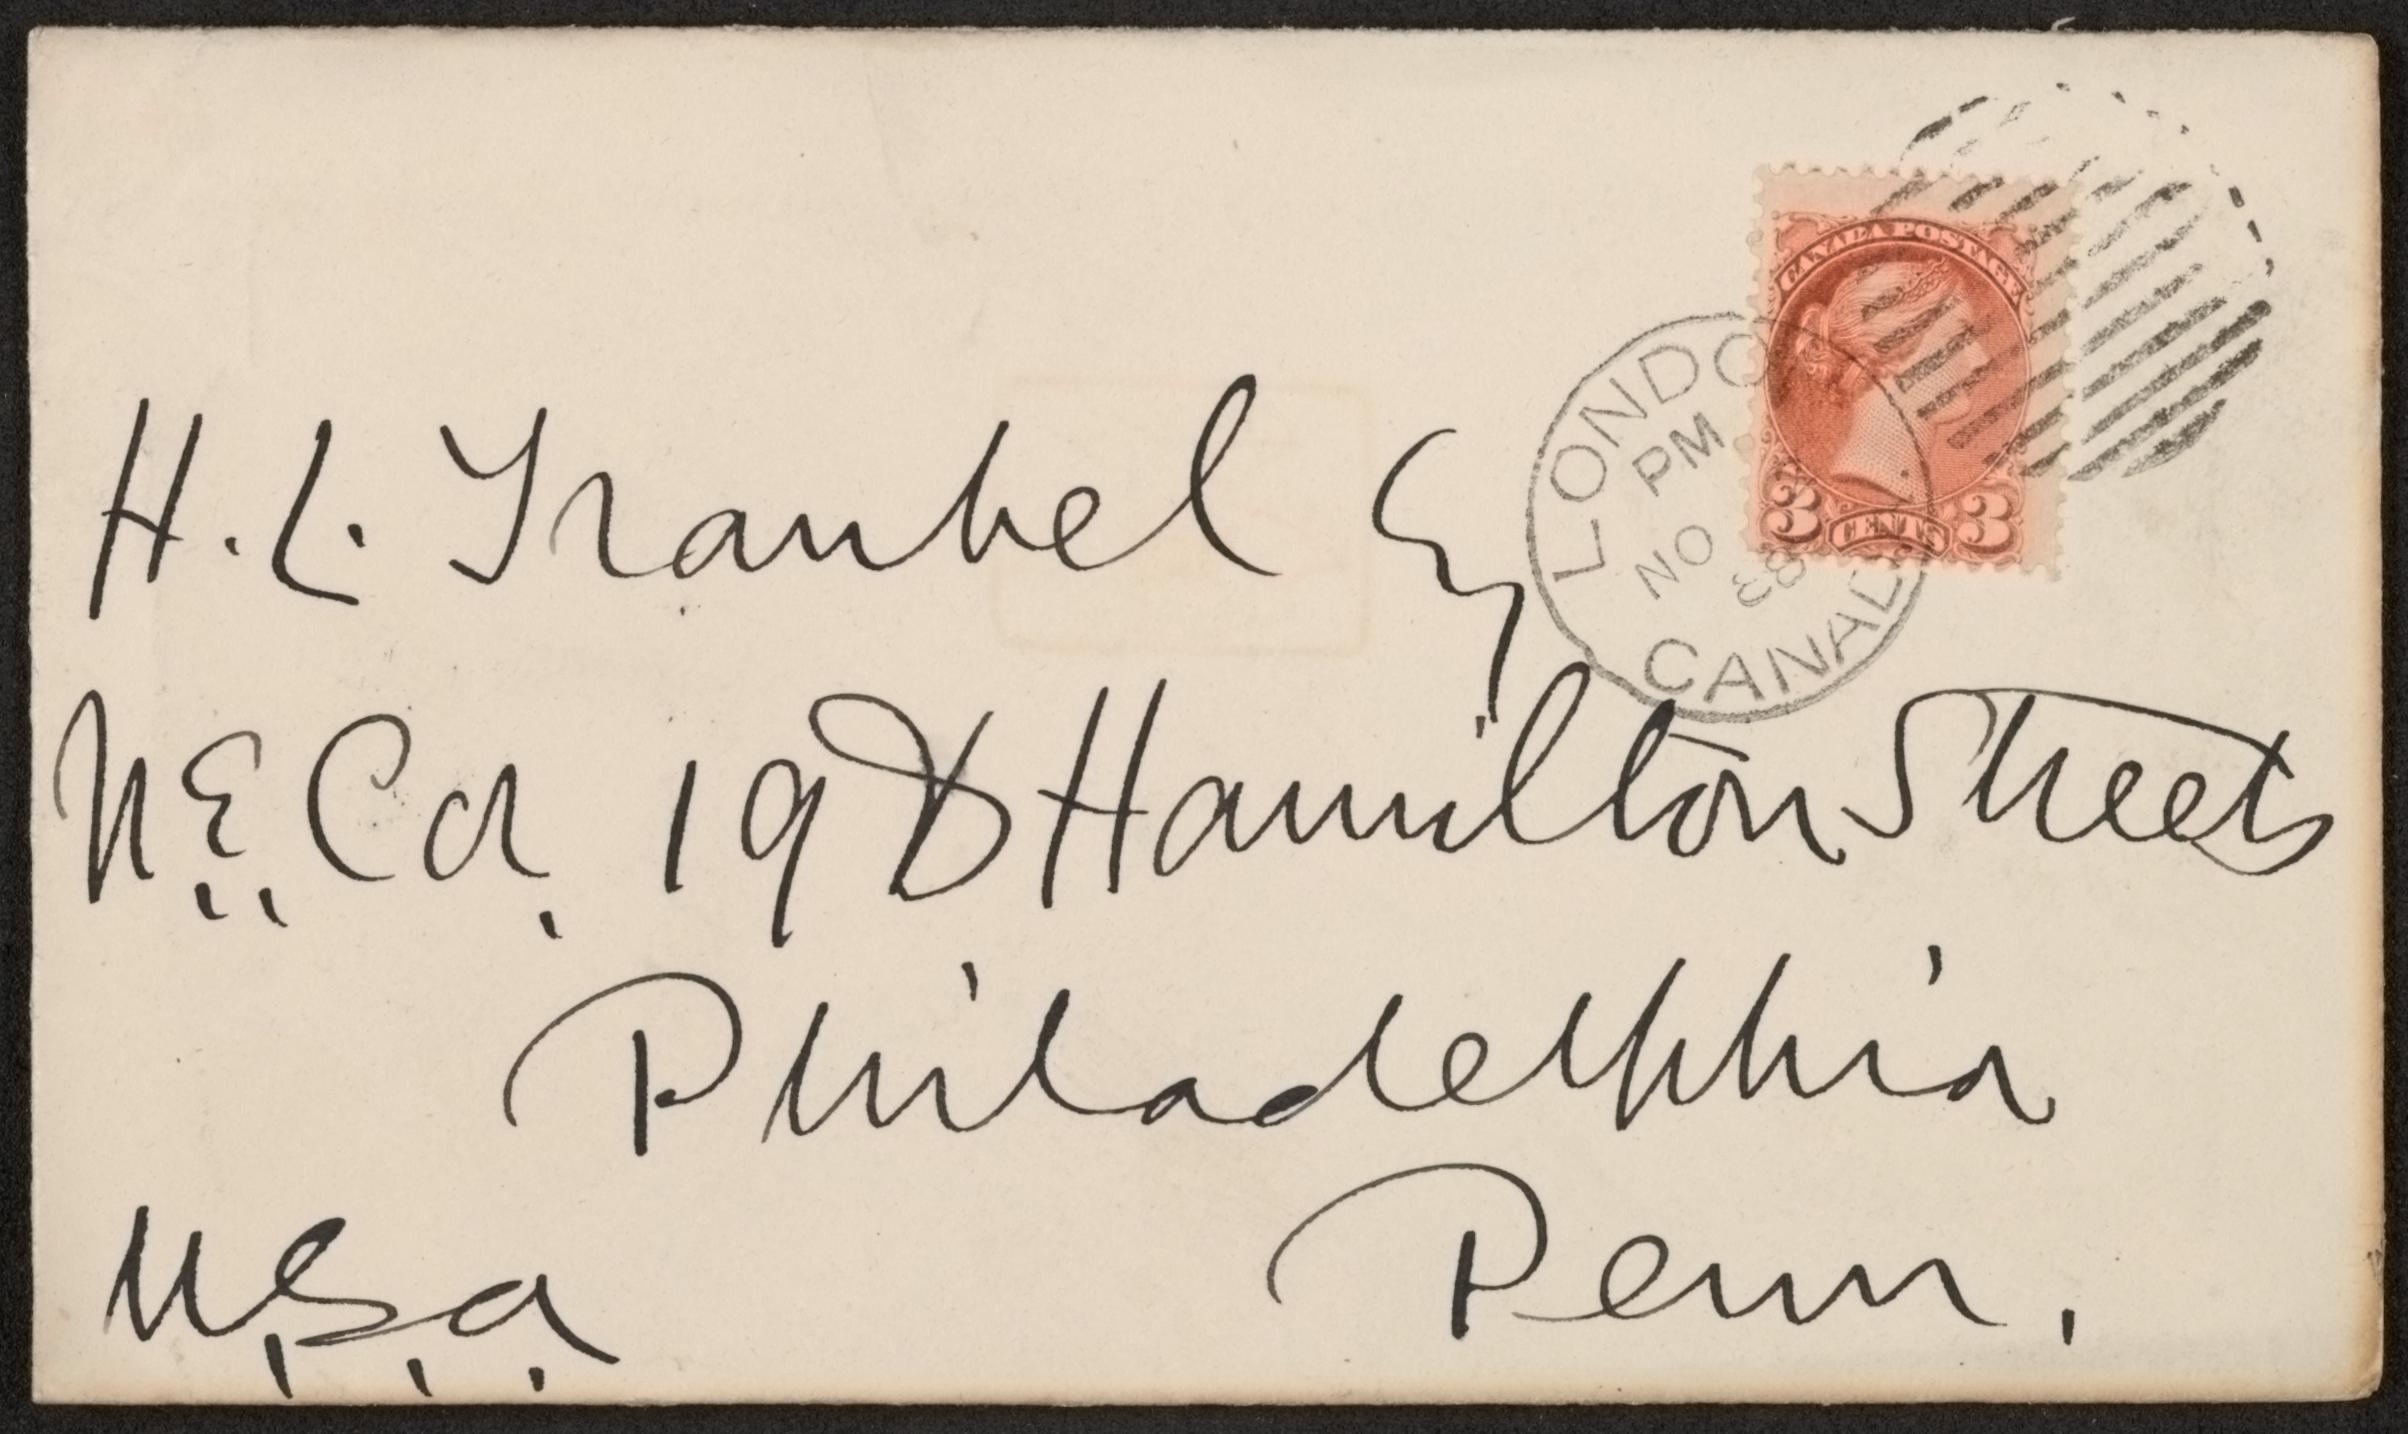 CANADA POSTAGE
3 CENTS 3
LONDO
PM
NO
88
CANAD
H. L. Traubel Esq
N.E. Cor. 19 & Hamilton Streets
Philadelphia
Penn.
U.S.a.